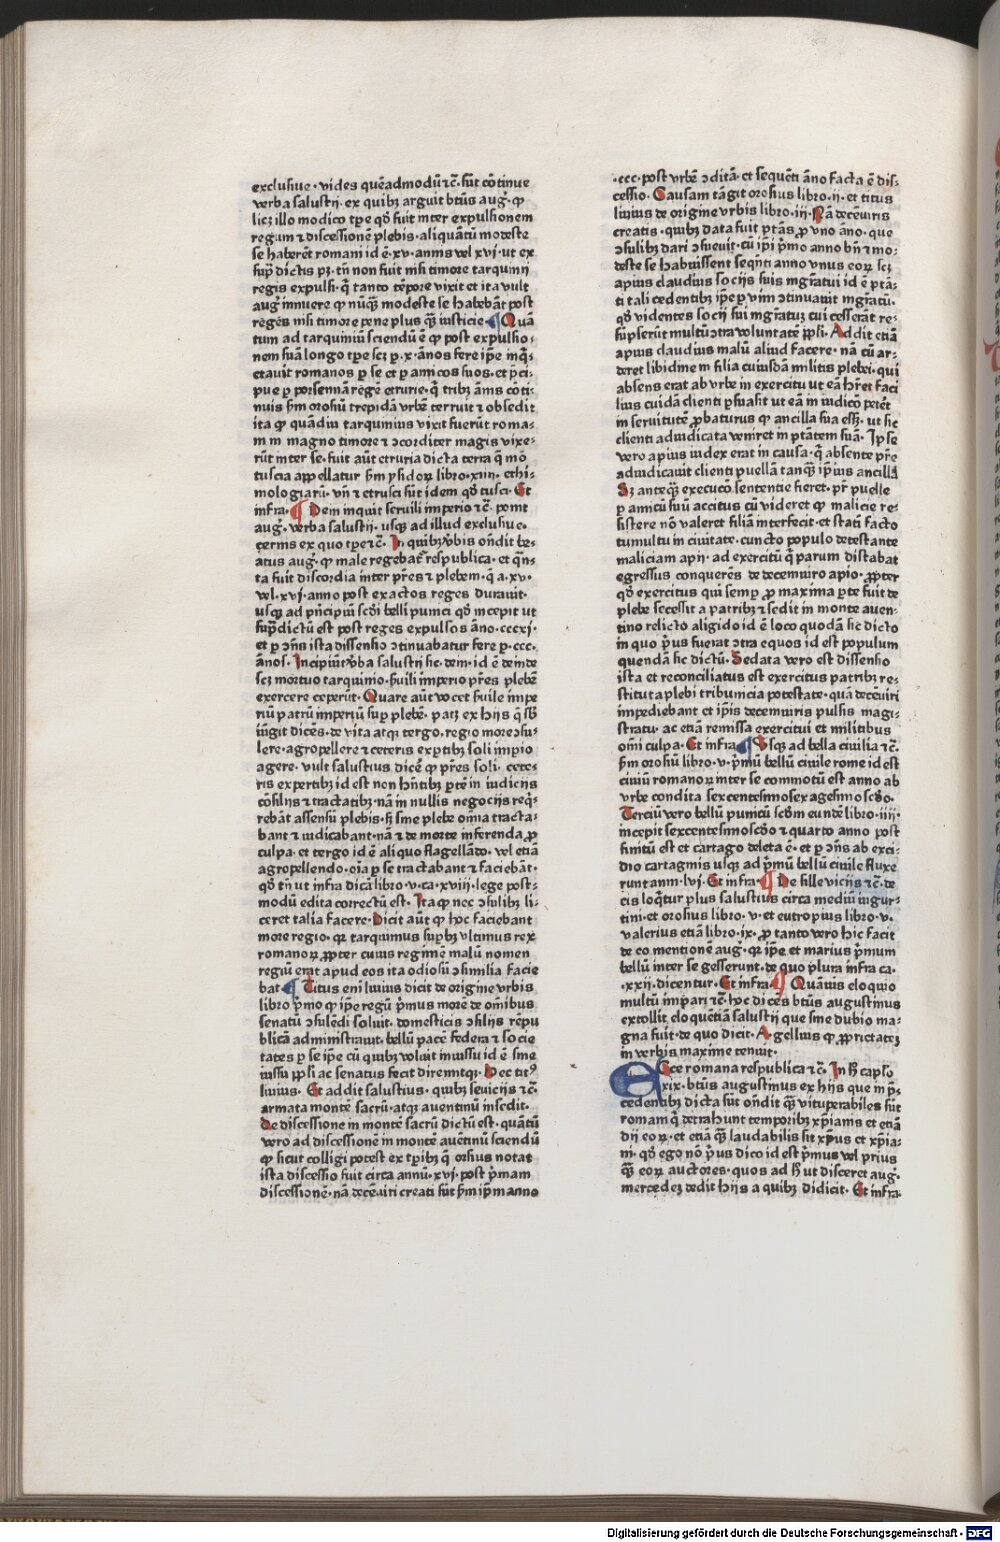 exclusiue · vides quēadmodū ⁊c̄ · sūt cōtinue
verba salustij · ex quibꝫ arguit btūs augꝰ · ꝙ
licꝫ illo modico tꝑe qd̄ fuit inter expulsionem
regum ⁊ discessionē plebis · aliquātū modeste
se haberēt romani id ē · xv · annis vel xvj · ut ex
sup̄ dictis pꝫ · tn̄ non fuit nisi timore tarquinij
regis expulsi · q̄ tanto tēpore vixit et ita vult
augꝰ innuere ꝙ nūqꝫ modeste se habebāt post
reges nisi timore pene plus qꝫ iusticie ¶ Quā
tum ad tarquiniū sciendū ē ꝙ post expulsio⸗
nem suā longo tꝑe scꝫ ꝑ · x · ānos fere ip̄e inqꝫ⸗
etauit romanos ꝑ se et ꝑ amicos suos · et p̄ci⸗
pue ꝑ porsennā regē etrurie · q̄ tribꝫ ānis cōti⸗
nuis ẜm orosiū trepidā vrbē terruit ⁊ obsedit
ita ꝙ quādiu tarquinius vixit fuerūt roma⸗
ni in magno timore ⁊ ↄcorditer magis vixe⸗
rūt inter se · fuit aūt etruria dicta terra q̄ mō
tuscia appellatur ẜm ysidoꝝ libro · xiiij · ethi⸗
mologiarū · vn̄ ⁊ etrusci sūt idem qd̄ tusci · Et
infra · ¶ Dein inquit seruili imperio ⁊c̄ · ponit
augꝰ · verba salustij · usqꝫ ad illud exclusiue ·
cernis ex quo tꝑe ⁊c̄ · In quibꝫ v̄bis on̄dit be⸗
atus augꝰ · ꝙ male regebat̄ respublica · et q̄n⸗
ta fuit discordia inter pr̄es ⁊ plebem · q̄ a · xv ·
vel · xvj · anno post exactos reges durauit ·
usqꝫ ad p̄ncipiū scd̄i belli punici qd̄ incepit ut
sup̄dictū est post reges expulsos āno · cccxj ·
et ꝑ ↄn̄s ista dissensio ↄtinuabatur fere ꝑ · ccc ·
ānos · Incipiūt v̄ba salustij sic · dein · id ē deinde
scꝫ mortuo tarquinio · s̄uili imperio pr̄es plebē
exercere ceperūt · Quare aūt vocet s̄uile impe
riū patrū imperiū suꝑ plebē · patꝫ ex hijs q̄ sb̄
iūgit dicēs · de vita atqꝫ tergo · regio more ↄsu⸗
lere · agropellere ⁊ ceteris exꝑtibꝫ soli impio
agere · vult salustius dicē ꝙ pr̄es soli · cete⸗
ris expertibꝫ id est non hn̄tibꝫ ꝑtē in iudicijs
cōsilijs ⁊ tractatibꝫ · nā in nullis negocijs reqꝫ⸗
rebāt assensū plebis · sꝫ sine plebe oīnia tracta⸗
bant ⁊ iudicabant · nā ⁊ de morte inferenda ꝓ
culpa · et tergo id ē aliquo flagellādo · vel etiā
agropellendo · oīa ꝑ se tractabant ⁊ faciebāt ·
qd̄ tn̄ ut infra dicā libro · v · ca · xviij · lege post⸗
modū edita correctū est · Ita ꝙ nec ↄsulibꝫ li⸗
ceret talia facere · Dicit aūt ꝙ hoc faciebant
more regio · qꝛ tarquinius suꝑbꝫ vltimus rex
romanoꝝ ꝓpter cuius regimē malū nomen
regiū erat apud eos ita odiosū ↄsimilia facie
bat ¶ Titus eni liuius dicit de origine vrbis
libro p̄mo ꝙ ip̄e regū p̄mus morē de om̄ibus
senatū ↄsulēdi soluit · domesticis ↄsilijs rēpu
blicā administrauit · bellū pacē federa ⁊ socie
tates ꝑ se ip̄e cū quibꝫ voluit iniussu id ē sine
iussu pp̄li ac senatus fecit diremitqꝫ · Hec titꝰ
liuius · Et addit salustius · quibꝫ seuicijs ⁊c̄ ·
armata montē sacrū · atqꝫ auentinū insedit ·
de discessione in montē sacrū dictū est · quātū
vero ad discessionē in montē auētinū sciendū
ꝙ sicut colligi potest ex tꝑibꝫ q̄ orosius notat
ista discessio fuit circa annū · xvj · post p̄mam
discessionē · nā decēuiri creati sūt ẜm ip̄m anno
· ccc · post vrbē ↄditā · et sequēti āno facta ē dis⸗
cessio · Causam tāgit orosius libro · ij · et titus
liuius de origine vrbis libro · iij · Nā decēuiris
creatis · quibꝫ data fuit ptās ꝓ vno āno · que
ↄsulibꝫ dari ↄsueuit · cū ip̄i p̄mo anno bn̄ ⁊ mo⸗
deste se habuissent seqn̄ti anno vnus eoꝝ scꝫ
apius claudius socijs suis mgr̄atui id ē ptā⸗
ti tali cedentibꝫ ip̄e ꝑ vim ↄtinuauit mgr̄atū ·
qd̄ videntes socij sui mgr̄atuꝫ cui cesserāt re⸗
sūpserūt multū ↄtra voluntatē pp̄li · Addit etiā
apius claudius malū aliud facere · nā cū ar⸗
deret libidine in filia cuiusdā militis plebei · qui
absens erat ab vrbe in exercitu ut eā hr̄et faci
lius cuidā clienti ꝑsuasit ut eā in iudicō petēt
in seruitutē ꝓbaturus ꝙ ancilla sua eēt · ut sic
clienti adiudicata veniret in ptātem suā · Ipse
vero apius iudex erat in causa · q̄ absente pr̄e
adiudicauit clienti puellā tanqꝫ ip̄ius ancillā
Sꝫ anteqꝫ execucō sententie fieret · pr̄ puelle
ꝑ amicū suū accitus cū videret ꝙ malicie re⸗
sistere nō valeret filiā interfecit · et stati facto
tumultu in ciuitate · cuncto populo detestante
maliciam apij · ad exercitū q̄ parum distabat
egressus conquerēs de decemuiro apio · ꝓpter
qd̄ exercitus qui semꝑ ꝓ maxima ꝑte fuit de
plebe secessit a patribꝫ ⁊ sedit in monte auen⸗
tino relicto aligido id ē loco quodā sic dicto
in quo p̄us fuerat ↄtra equos id est populum
quendā sic dictū · Sedata vero est dissensio
ista et reconciliatus est exercitus patribꝫ re⸗
stituta plebi tribunicia potestate · quā decēuiri
impediebant et ip̄is decemuiris pulsis magi⸗
stratu · ac etiā remissa exercitui et militibus
om̄i culpa · Et infra ¶ Usqꝫ ad bella ciuilia ⁊c̄ ·
ẜm orosiū libro · v · p̄mū bellū ciuile rome id est
ciuiū romanoꝝ inter se commotū est anno ab
vrbe condita sexcentesimosexagesimoscd̄o ·
Terciū vero bellū punicū scd̄m eundē libro · iiij ·
incepit sexcentesimoscd̄o ⁊ quarto anno post
finitū est et cartago deleta ē · et ꝑ ↄn̄s ab exci⸗
dio cartaginis usqꝫ ad p̄mū bellū ciuile fluxe
runt anni · lvj · Et infra · ¶ De sille vicijs ⁊c̄ · de
cis loqt̄ur plus salustius circa mediū iugur⸗
tini · et orosius libro · v · et eutropius libro · v ·
valerius etiā libro · ix · ꝓ tanto vero hic facit
de eo mentionē augꝰ · qꝛ ip̄e et marius p̄mum
bellū inter se gesserunt · de quo plura infra ca ·
· xxij · dicentur · Et infra ¶ Quāuis eloquio
multū impari ⁊c̄ · hoc dicēs btūs augustinus
extollit eloquētiā salustij que sine dubio ma⸗
gna fuit · de quo dicit · Agellius ꝙ ꝓprietateꝫ
in verbis maxime tenuit ·
Ecce romana respublica ⁊c̄ · In ħ capl̄o
xix · btūs augustinus ex hijs que in p̄⸗
cedentibꝫ dicta sūt on̄dit qꝫ vituperabiles sūt
romani q̄ detrahunt temporibꝫ xp̄ianis et etiā
dij eoꝝ · et etiā qꝫ laudabilis sit xp̄us et xp̄ia⸗
ni · qd̄ ego nō p̄us dico id est p̄mus vel prius
qꝫ eoꝝ auctores · quos ad ħ ut disceret augꝰ ·
mercedeꝫ dedit hijs a quibꝫ didicit · Et infra ·
Digitalisierung gefördert durch die Deutsche Forschungsgemeinschaft - DFG